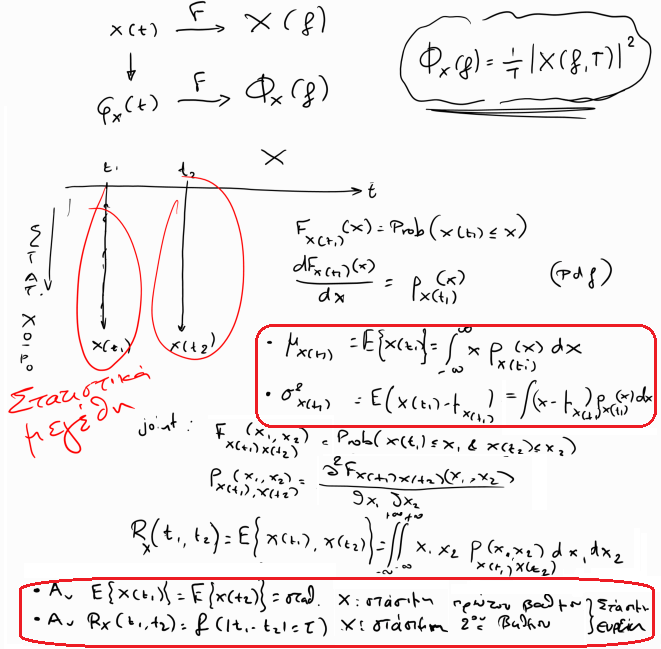 x(t) F→ X(f)
φx(t) F→ Φx(f)
Φx(f) = 1/T |X(f,T)|²
X
t₁ t₂ t
ΣΤΑΤ. ΧΩΡΟ
x(t₁) x(t₂)
Στατιστικά
μεγέθη
F_x(t₁)(x) = Prob(x(t₁) ≤ x)
dF_x(t₁)(x)/dx = p_x(t₁)(x) (pdf)
• μ_x(t₁) = E{x(t₁)} = ∫_{-∞}^{∞} x p_x(t₁)(x) dx
• σ²_x(t₁) = E(x(t₁)-μ_x(t₁)) = ∫(x-μ_x(t₁)) p_x(t₁)(x) dx
joint: F_x(t₁)x(t₂)(x₁,x₂) = Prob(x(t₁) ≤ x₁ & x(t₂) ≤ x₂)
p_x(t₁),x(t₂)(x₁,x₂) = ∂²F_x(t₁)x(t₂)(x₁,x₂)/∂x₁ ∂x₂
R_x(t₁,t₂) = E{x(t₁), x(t₂)} = ∫_{-∞}^{+∞}∫_{-∞}^{+∞} x₁ x₂ p_x(t₁),x(t₂)(x₁,x₂) dx₁ dx₂
• Αν E{x(t₁)} = E{x(t₂)} = σταθ. X: στάσιμη πρώτου βαθμού } Στάσιμη
• Αν Rx(t₁,t₂) = f(|t₁-t₂| = τ) X: στάσιμη 2ου βαθμου } ευρεία